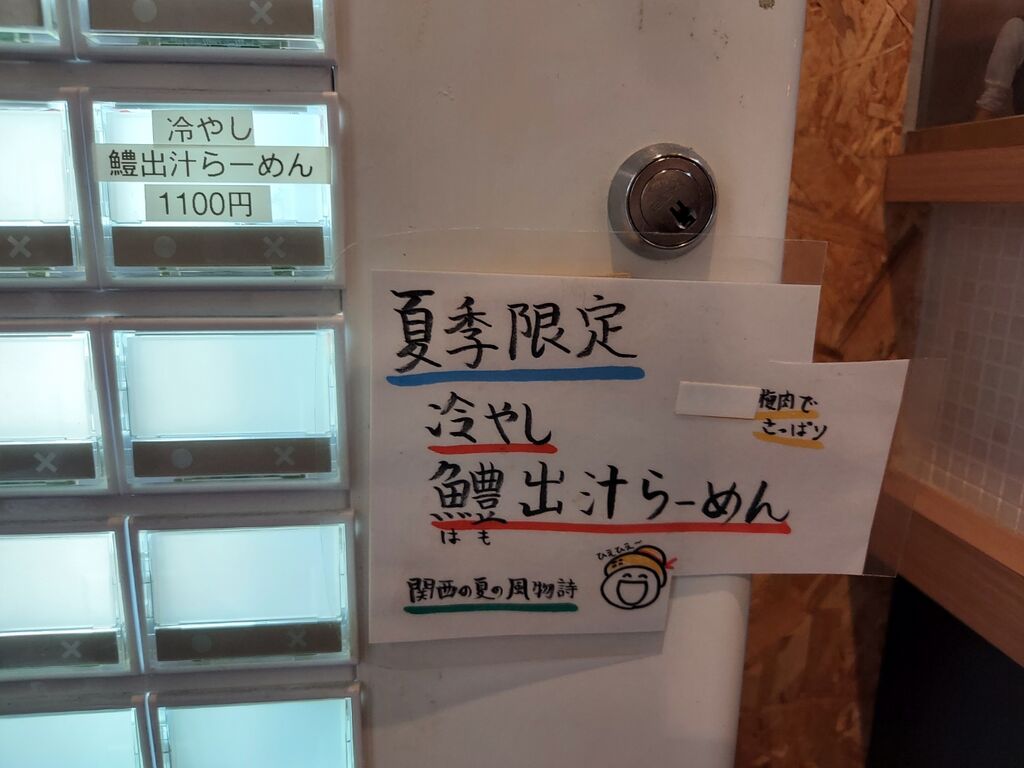 冷やし
鱧出汁らーめん
1100円
夏季限定
冷やし
梅肉で
さっぱり
鱧出汁らーめん
はも
ひえひえ〜
関西の夏の風物詩